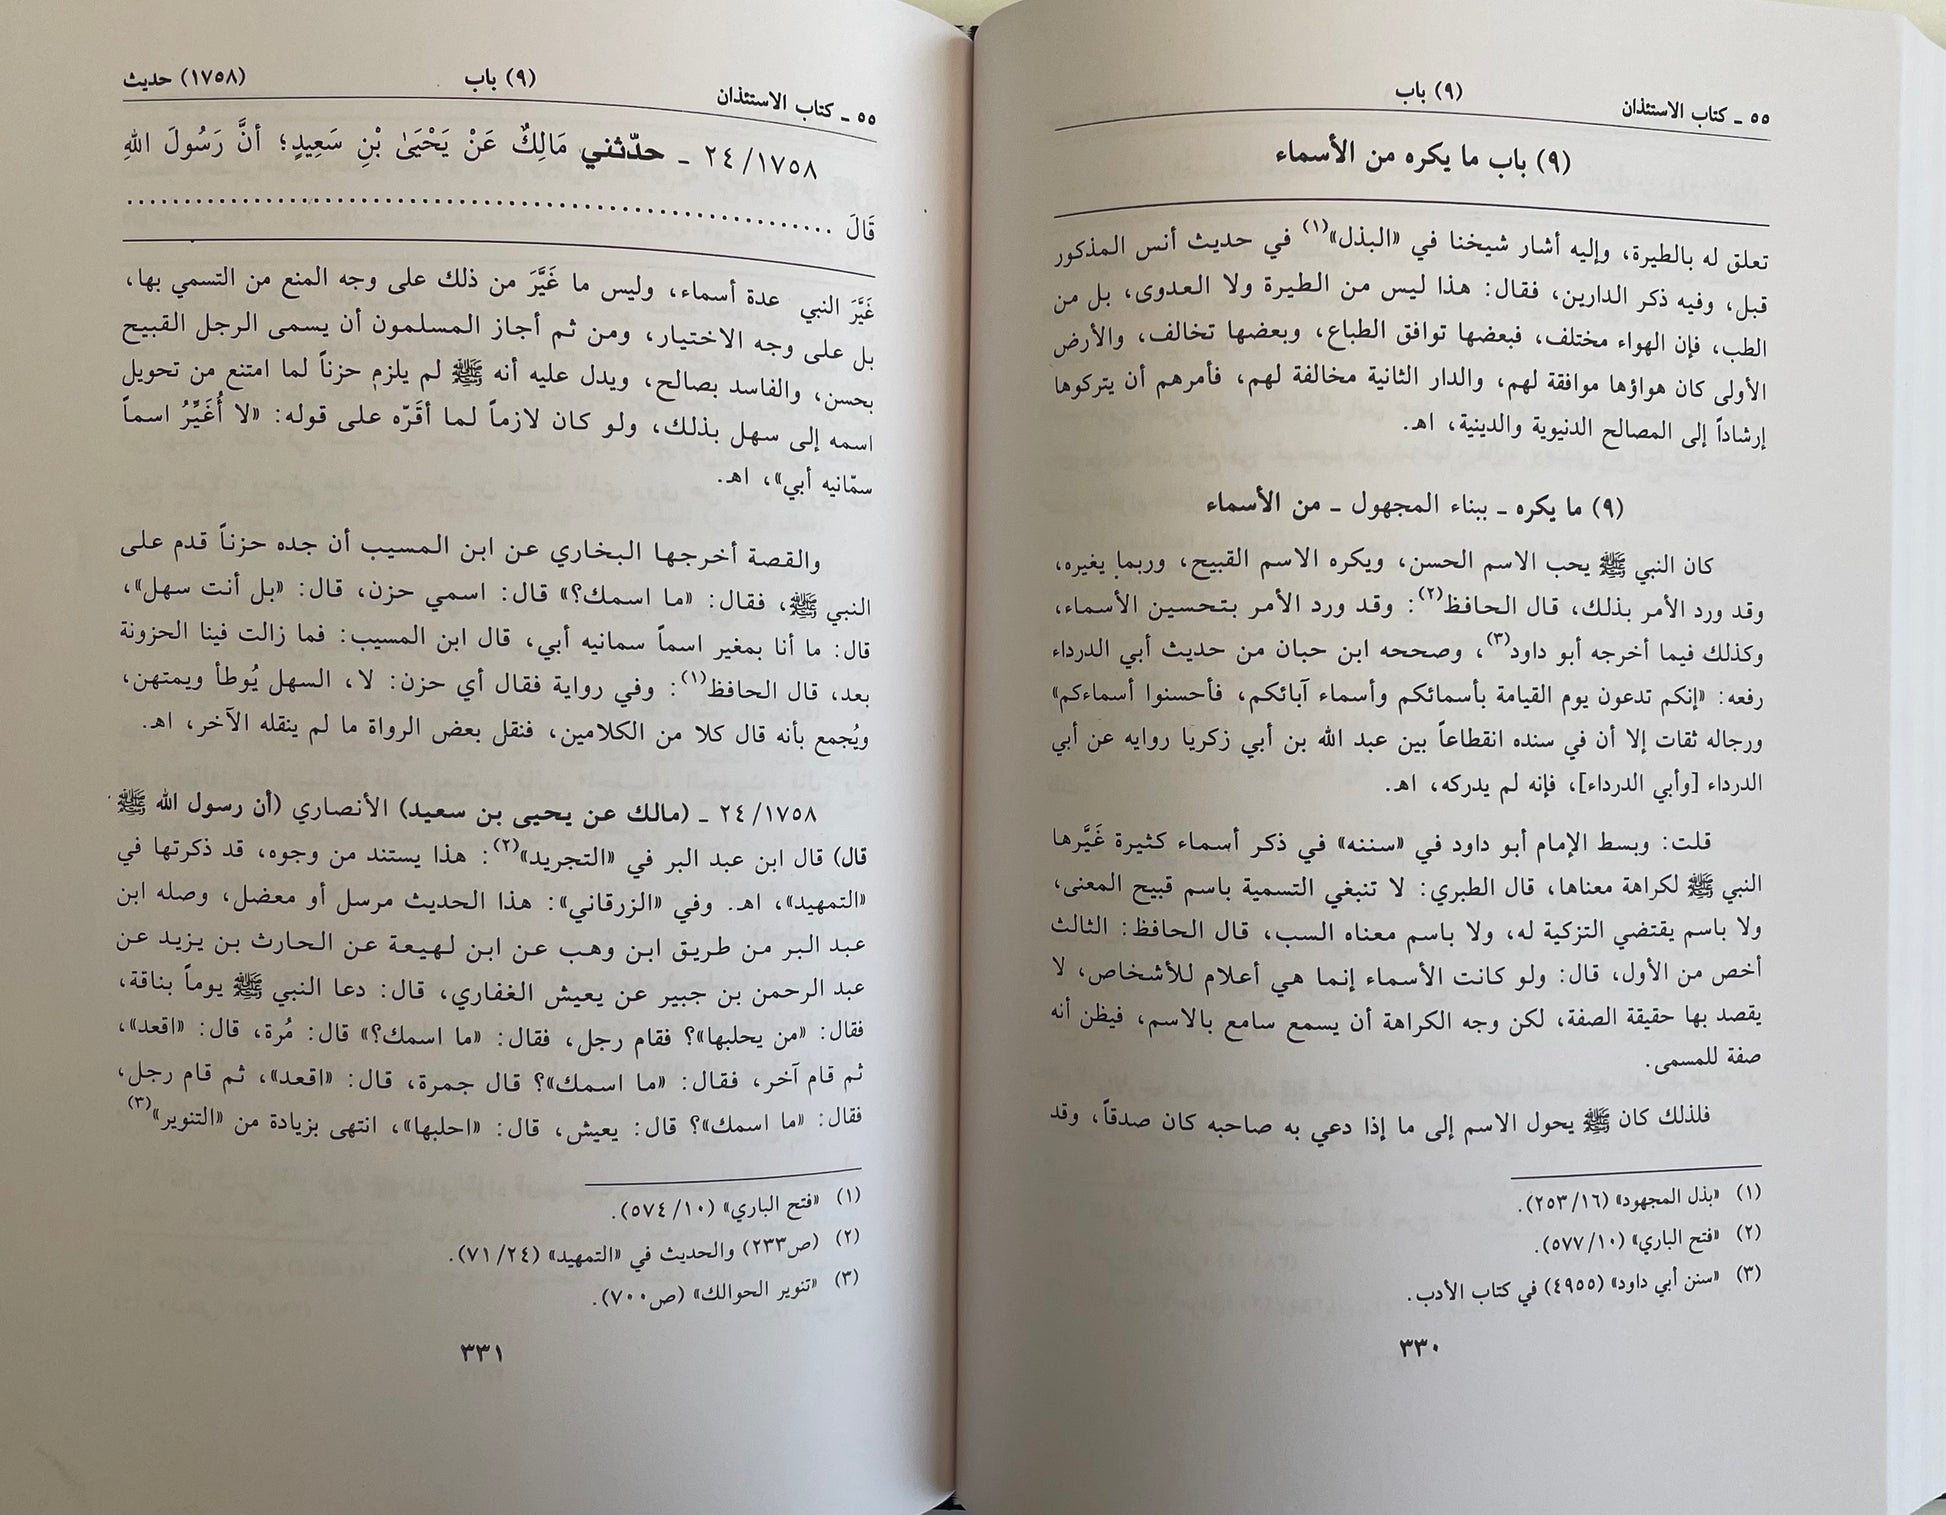 ٥٥ ـ كتاب الاستئذان
(٩) باب
(٩) باب ما يكره من الأسماء
تعلق له بالطيرة، وإليه أشار شيخنا في «البذل»(١) في حديث أنس المذكور
قبل، وفيه ذكر الدارين، فقال: هذا ليس من الطيرة ولا العدوى، بل من
الطب، فإن الهواء مختلف، فبعضها توافق الطباع، وبعضها تخالف، والأرض
الأولى كان هواؤها موافقة لهم، والدار الثانية مخالفة لهم، فأمرهم أن يتركوها
إرشاداً إلى المصالح الدنيوية والدينية، اهـ.
(٩) ما يكره ـ ببناء المجهول ـ من الأسماء
كان النبي ﷺ يحب الاسم الحسن، ويكره الاسم القبيح، وربما يغيره،
وقد ورد الأمر بذلك، قال الحافظ(٢): وقد ورد الأمر بتحسين الأسماء،
وكذلك فيما أخرجه أبو داود(٣)، وصححه ابن حبان من حديث أبي الدرداء
رفعه: «إنكم تدعون يوم القيامة بأسمائكم وأسماء آبائكم، فأحسنوا أسماءكم»
ورجاله ثقات إلا أن في سنده انقطاعاً بين عبد الله بن أبي زكريا روايه عن أبي
الدرداء [وأبي الدرداء]، فإنه لم يدركه، اهـ.
قلت: وبسط الإمام أبو داود في «سننه» في ذكر أسماء كثيرة غَيَّرها
النبي ﷺ لكراهة معناها، قال الطبري: لا تنبغي التسمية باسم قبيح المعنى،
ولا باسم يقتضي التزكية له، ولا باسم معناه السب، قال الحافظ: الثالث
أخص من الأول، قال: ولو كانت الأسماء إنما هي أعلام للأشخاص، لا
يقصد بها حقيقة الصفة، لكن وجه الكراهة أن يسمع سامع بالاسم، فيظن أنه
صفة للمسمى.
فلذلك كان ﷺ يحول الاسم إلى ما إذا دعي به صاحبه كان صدقاً، وقد
(١) «بذل المجهود» (٢٥٣/١٦).
(٢) «فتح الباري» (٥٧٧/١٠).
(٣) «سنن أبي داود» (٤٩٥٥) في كتاب الأدب.
٣٣٠
٥٥ ـ كتاب الاستئذان
(٩) باب
(١٧٥٨) حديث
٢٤/١٧٥٨ ـ حدّثني مَالِكٌ عَنْ يَحْيَىٰ بْنِ سَعِيدٍ؛ أنَّ رَسُولَ اللهِ
قَالَ ................................................
غَيَّرَ النبي عدة أسماء، وليس ما غَيَّرَ من ذلك على وجه المنع من التسمي بها،
بل على وجه الاختيار، ومن ثم أجاز المسلمون أن يسمى الرجل القبيح
بحسن، والفاسد بصالح، ويدل عليه أنه ﷺ لم يلزم حزناً لما امتنع من تحويل
اسمه إلى سهل بذلك، ولو كان لازماً لما أقَرّه على قوله: «لا أُغَيِّرُ اسماً
سمّانيه أبي»، اهـ.
والقصة أخرجها البخاري عن ابن المسيب أن جده حزناً قدم على
النبي ﷺ، فقال: «ما اسمك؟» قال: اسمي حزن، قال: «بل أنت سهل»،
قال: ما أنا بمغير اسماً سمانيه أبي، قال ابن المسيب: فما زالت فينا الحزونة
بعد، قال الحافظ(١): وفي رواية فقال أي حزن: لا، السهل يُوطأ ويمتهن،
ويُجمع بأنه قال كلا من الكلامين، فنقل بعض الرواة ما لم ينقله الآخر، اهـ.
٢٤/١٧٥٨ ـ (مالك عن يحيى بن سعيد) الأنصاري (أن رسول الله ﷺ
قال) قال ابن عبد البر في «التجريد»(٢): هذا يستند من وجوه، قد ذكرتها في
«التمهيد»، اهـ. وفي «الزرقاني»: هذا الحديث مرسل أو معضل، وصله ابن
عبد البر من طريق ابن وهب عن ابن لهيعة عن الحارث بن يزيد عن
عبد الرحمن بن جبير عن يعيش الغفاري، قال: دعا النبي ﷺ يوماً بناقة،
فقال: «من يحلبها»؟ فقام رجل، فقال: «ما اسمك؟» قال: مُرة، قال: «اقعد»،
ثم قام آخر، فقال: «ما اسمك»؟ قال جمرة، قال: «اقعد»، ثم قام رجل،
فقال: «ما اسمك»؟ قال: يعيش، قال: «احلبها»، انتهى بزيادة من «التنوير»(٣)
(١) «فتح الباري» (٥٧٤/١٠).
(٢) (ص٢٣٣) والحديث في «التمهيد» (٧١/٢٤).
(٣) «تنوير الحوالك» (ص٧٠٠).
٣٣١